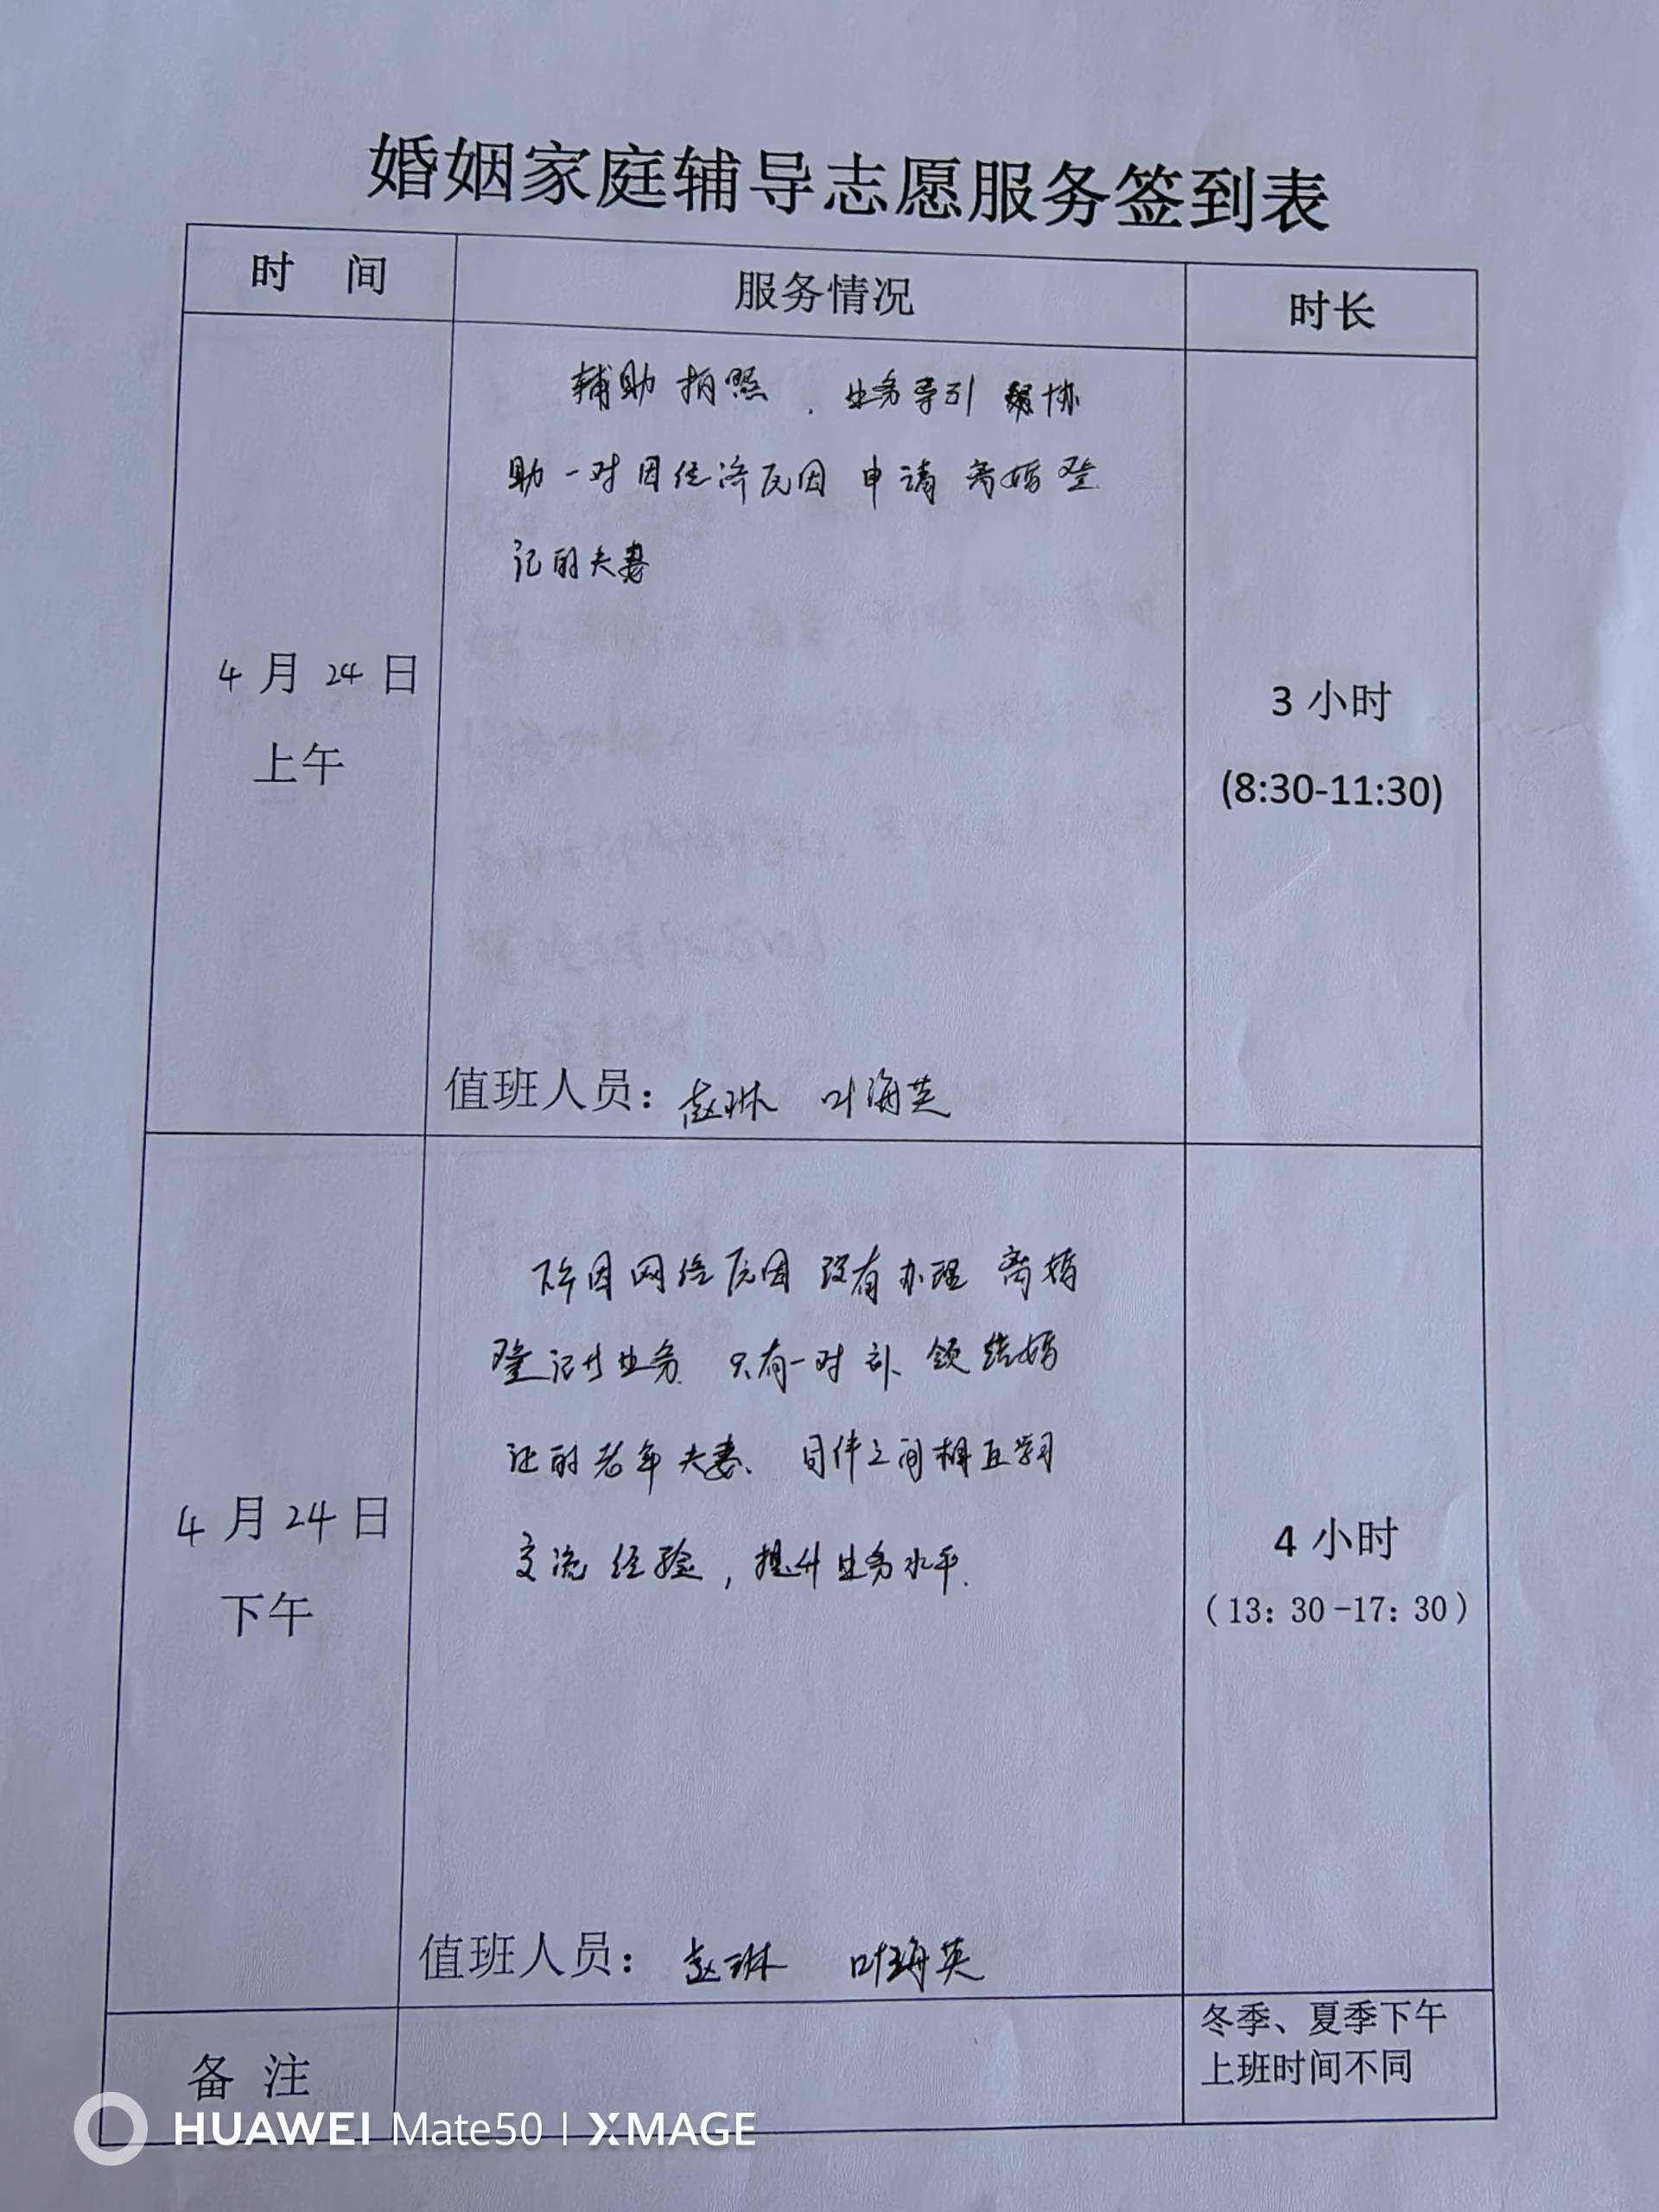 婚姻家庭辅导志愿服务签到表
时 间 服务情况 时长
辅助拍照、业务导引 协
助一对因经济原因申请离婚登
记的夫妻
4月24日
上午
3小时
(8:30-11:30)
值班人员：赵琳 叶海英
下午因网络原因没有办理离婚
登记业务 只有一对补领结婚
证的老年夫妻、同伴之间相互学习
交流经验，提升业务水平.
4月24日
下午
4小时
（13：30-17：30）
值班人员： 赵琳 叶海英
备 注
冬季、夏季下午
上班时间不同
HUAWEI Mate50 | XMAGE